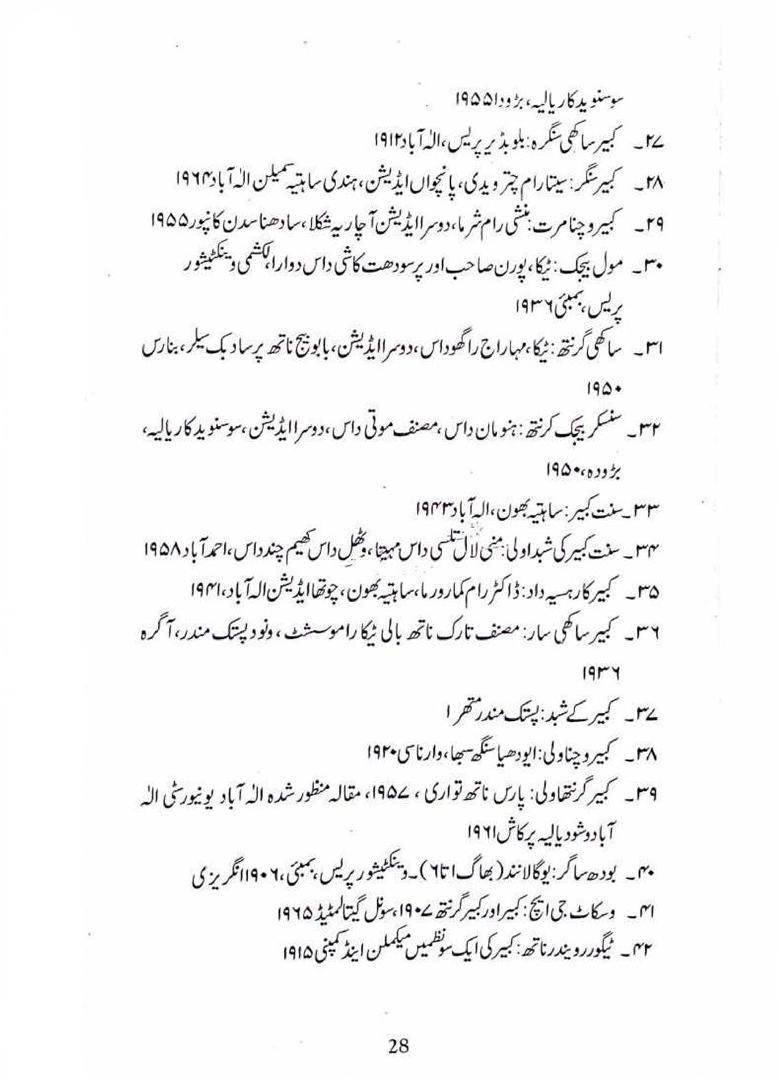 سوسنوید کاریالیہ، بڑودا ۱۹۵۵
۲۷۔ کبیر ساکھی سنگرہ: بلوبڈیر پریس، الٰہ آباد ۱۹۱۲
۲۸۔ کبیر سنگر: سیتا رام چترویدی، پانچواں ایڈیشن، ہندی ساہتیہ سمیلن الٰہ آباد ۱۹۶۴
۲۹۔ کبیر وچنامرت: منشی رام شرما، دوسرا ایڈیشن آچاریہ شکلا، سادھنا سدن کانپور ۱۹۵۵
۳۰۔ مول بیجک: ٹیکا، پورن صاحب اور پرسودھت کاشی داس دوارا، لکشمی وینکٹیشور
پریس، بمبئی ۱۹۳۶
۳۱۔ ساکھی گرنتھ: ٹیکا، مہاراج راگھو داس، دوسرا ایڈیشن، بابو بیج ناتھ پرساد بک سیلر، بنارس
۱۹۵۰
۳۲۔ سنسکر بیجک کرنتھ: ہنومان داس، مصنف موتی داس، دوسرا ایڈیشن، سوسنوید کاریالیہ،
بڑودہ، ۱۹۵۰
۳۳۔ سنت کبیر: ساہتیہ بھون، الہ آباد ۱۹۴۳
۳۴۔ سنت کبیر کی شبداولی: منی لال تلسی داس مہیتا، وٹھل داس کھیم چند داس، احمد آباد ۱۹۵۸
۳۵۔ کبیر کا رہسیہ داد: ڈاکٹر رام کمار ورما، ساہتیہ بھون، چوتھا ایڈیشن الہ آباد، ۱۹۴۱
۳۶۔ کبیر ساکھی سار: مصنف تارک ناتھ بالی ٹیکا راموسشٹ، ونود پستک مندر، آگرہ
۱۹۳۶
۳۷۔ کبیر کے شبد: پستک مندر متھرا
۳۸۔ کبیر وچناولی: ایودھیا سنگھ سبھا، وارناسی ۱۹۲۰
۳۹۔ کبیر گرنتھاولی: پارس ناتھ تواری، ۱۹۵۷، مقالہ منظور شدہ الٰہ آباد یونیورسٹی الٰہ
آباد وشودیالیہ پرکاش ۱۹۶۱
۴۰۔ بودھ ساگر: یوگالانند (بھاگ ۱ تا ۶)۔ وینکٹیشور پریس، بمبئی، ۱۹۰۶ انگریزی
۴۱۔ وسکاٹ جی ایچ: کبیر اور کبیر گرنتھ ۱۹۰۷، سونل گیتا لمٹیڈ ۱۹۶۵
۴۲۔ ٹیگور رویندر ناتھ: کبیر کی ایک سو نظمیں میکملن اینڈ کمپنی ۱۹۱۵
28